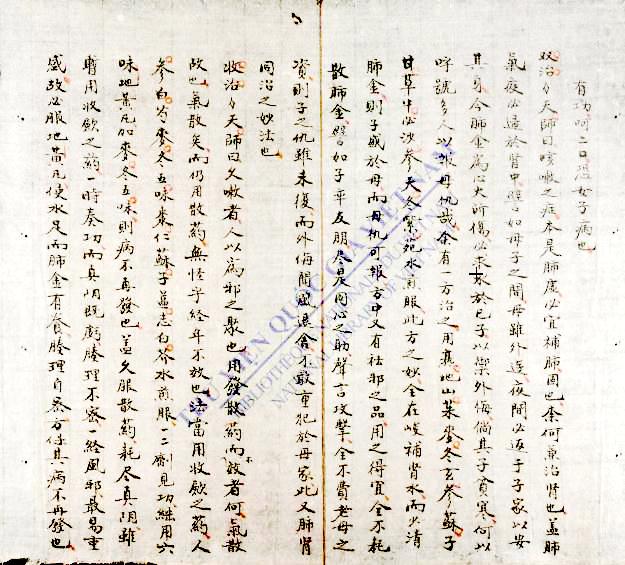 有功呵二曰煜女子病也
双治方天師曰咳嗽之症本是肺虗必宜補肺固也余何兼治腎也盖肺
氣夜必歸於腎中譬如母子之間母雖外遊夜間必返于子家以安
其身今肺金為心火所傷必求於己子以禦外侮倘其子貧寒何以
呼號多人以報母仇哉余有一方治之用襄地山茱麥冬玄參蘇子
甘草牛必沙參天冬紫菀水煎服此方之妙全在峻補腎水而少清
肺金則子盛於母而母仇可報方中又有祛邪之品用之得宜全不耗
散肺金譬如子率友朋尽是同心之助聲言攻擊全不費老母之
資則子之仇雖未復而外侮聞風退舍不敢重犯於母家此又肺腎
同治之妙法也
收治方天師曰久嗽者人以為邪之聚也用發散药而不效者何氣散
故也氣散矣而仍用散药無怪乎經年不放也法當用收歛之药人
參白芍麥冬五味棗仁蘇子益志白芥水煎服一二劑見功継用六
味地黄凡加麥冬五味則病不再發也盖久服散药耗尽真阴雖
暫用收歛之药一時奏功而真阴既虧腠理不宻一経風邪最易重
感故必服地黄凡使水足而肺金有養腠理自宻方保其病不再發也
THƯ VIỆN QUỐC GIA VIỆT NAM
BIBLIOTHÈQUE NATIONALE DU VIETNAM
NATIONAL LIBRARY OF VIETNAM